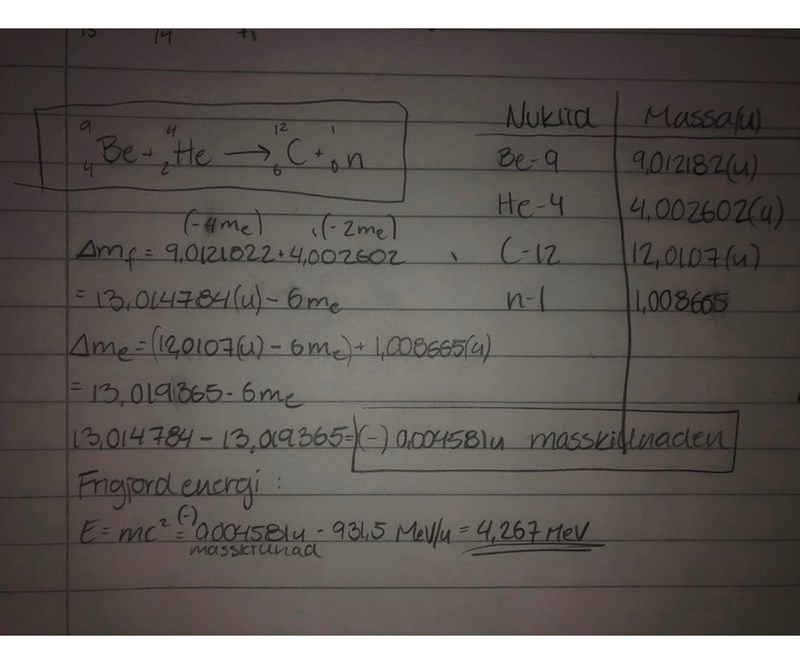 15 14 +1
⁹₄Be + ⁴₂He → ¹²₆C + ¹₀n
Nuklid Massa(u)
Be-9 9,012182(u)
He-4 4,002602(u)
C-12 12,0107(u)
n-1 1,008665
(-4me) (-2me)
Δmf = 9,0121822 + 4,002602
= 13,014784(u) - 6me
Δme = (12,0107(u) - 6me) + 1,008665(u)
= 13,019365 - 6me
13,014784 - 13,019365 = (-) 0,004581u masskillnaden
Frigjord energi :
E = mc² = (-) 0,004581u · 931,5 MeV/u = 4,267 MeV
masskillnad